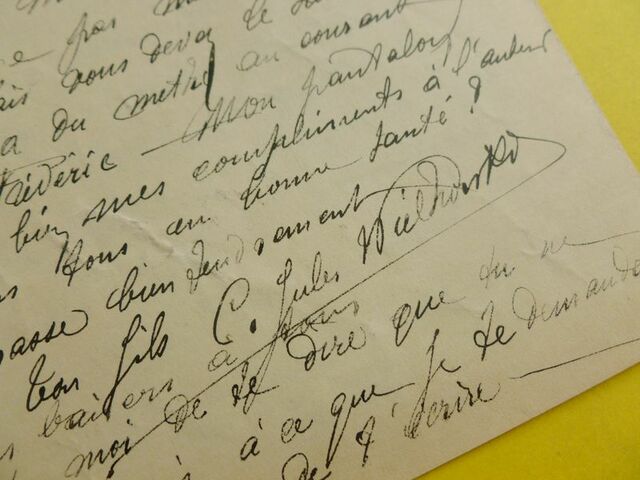 pas
vous deva le
a du mettre au courant
édéric — Mon pantalon
bien mes compliments à l'auteur
tous en bonne santé ?
asse bien tendrement
ton fils C. Jules Wielhorski
baisers à tous
moi de te dire que tu ne
à ce que je te demande
de t'écrire —